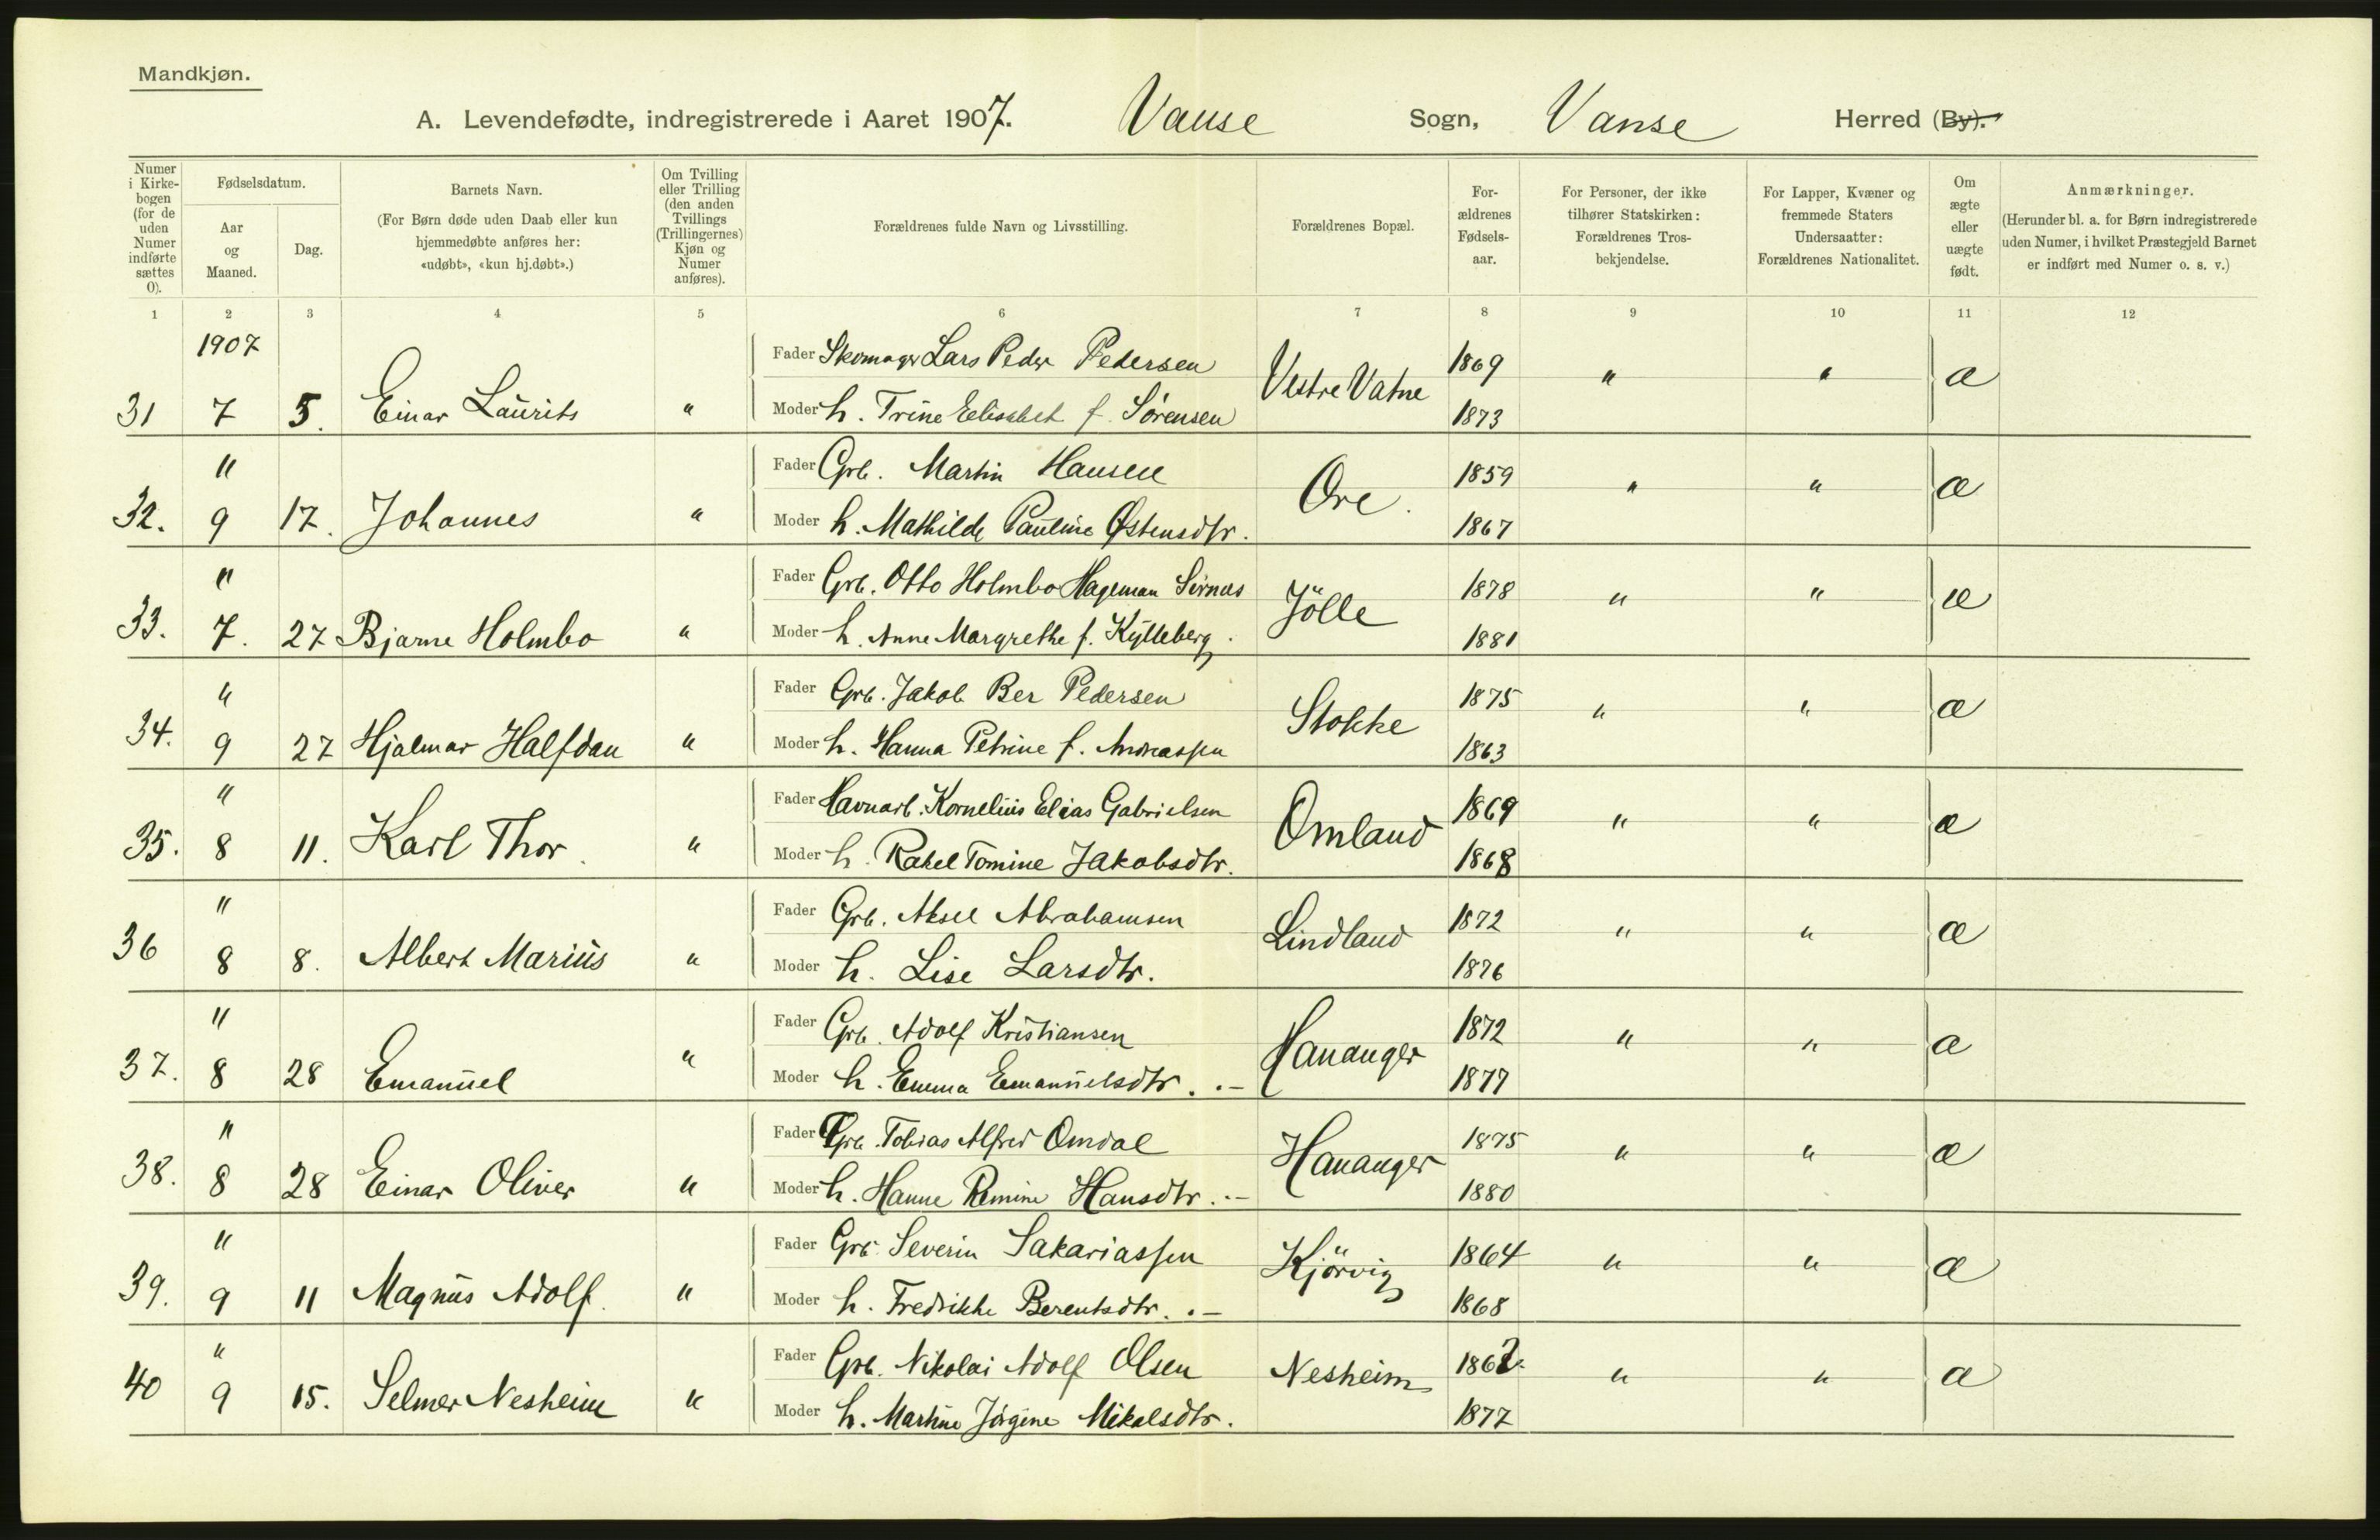 Mandkjøn.
A. Levendefødte, indregistrerede i Aaret 1907. Vanse Sogn, Vanse Herred (By).
Numer i Kirkebogen (for de uden Numer indførte sættes 0).
Fødselsdatum.
Aar og Maaned.
Dag.
Barnets Navn. (For Børn døde uden Daab eller kun hjemmedøbte anføres her: «udøbt», «kun hj.døbt».)
Om Tvilling eller Trilling (den anden Tvillings (Trillingernes) Kjøn og Numer anføres).
Forældrenes fulde Navn og Livsstilling.
Forældrenes Bopæl.
Forældrenes Fødselsaar.
For Personer, der ikke tilhører Statskirken: Forældrenes Trosbekjendelse.
For Lapper, Kvæner og fremmede Staters Undersaatter: Forældrenes Nationalitet.
Om ægte eller uægte født.
Anmærkninger. (Herunder bl. a. for Børn indregistrerede uden Numer, i hvilket Præstegjeld Barnet er indført med Numer o. s. v.)
1 2 3 4 5 6 7 8 9 10 11 12
1907 Fader Skomager Lars Peder Pedersen Vestre Vatne 1869 " " æ
31 7 5. Einar Laurits " Moder h. Trine Elisabet f. Sörensen 1873
" Fader Grb. Martin Hansen Ore. 1859 " " æ
32. 9 17. Johannes " Moder h. Mathilde Pauline Østensdtr. 1867
" Fader Grb. Otto Holmbo Hageman Sirnes Jölle 1878 " " æ
33. 7. 27 Bjarne Holmbo " Moder h. Anne Margrethe f. Kylleberg. 1881
" Fader Grb. Jakob Ber Pedersen Stokke 1875 " " æ
34. 9 27 Hjalmar Halfdan " Moder h. Hanna Petrine f. Andreassen 1863
" Fader Havnarb. Kornelius Elias Gabrielsen Omland 1869 " " æ
35. 8 11. Karl Thor. " Moder h. Rakel Tomine Jakobsdtr. 1868
" Fader Grb. Aksel Abrahamsen Lindland 1872 " " æ
36 8 8. Albert Marius " Moder h. Lise Larsdtr. 1876
" Fader Grb. Adolf Kristiansen Hananger 1872 " " æ
37. 8 28 Emanuel " Moder h. Emma Emanuelsdtr. .- 1877
" Fader Grb. Tobias Alfred Omdal Hananger 1875 " " æ
38. 8 28 Einar Oliver " Moder h. Hanne Remine Hansdtr. .- 1880
" Fader Grb. Severin Sakariassen Kjörvig 1864 " " æ
39. 9 11 Magnus Adolf. " Moder h. Fredrikke Berentsdtr. .- 1868
" Fader Grb. Nikolai Adolf Olsen Nesheim 1862 " " æ
40 9 15. Selmer Nesheim " Moder h. Martine Jörgine Mikalsdtr. 1877